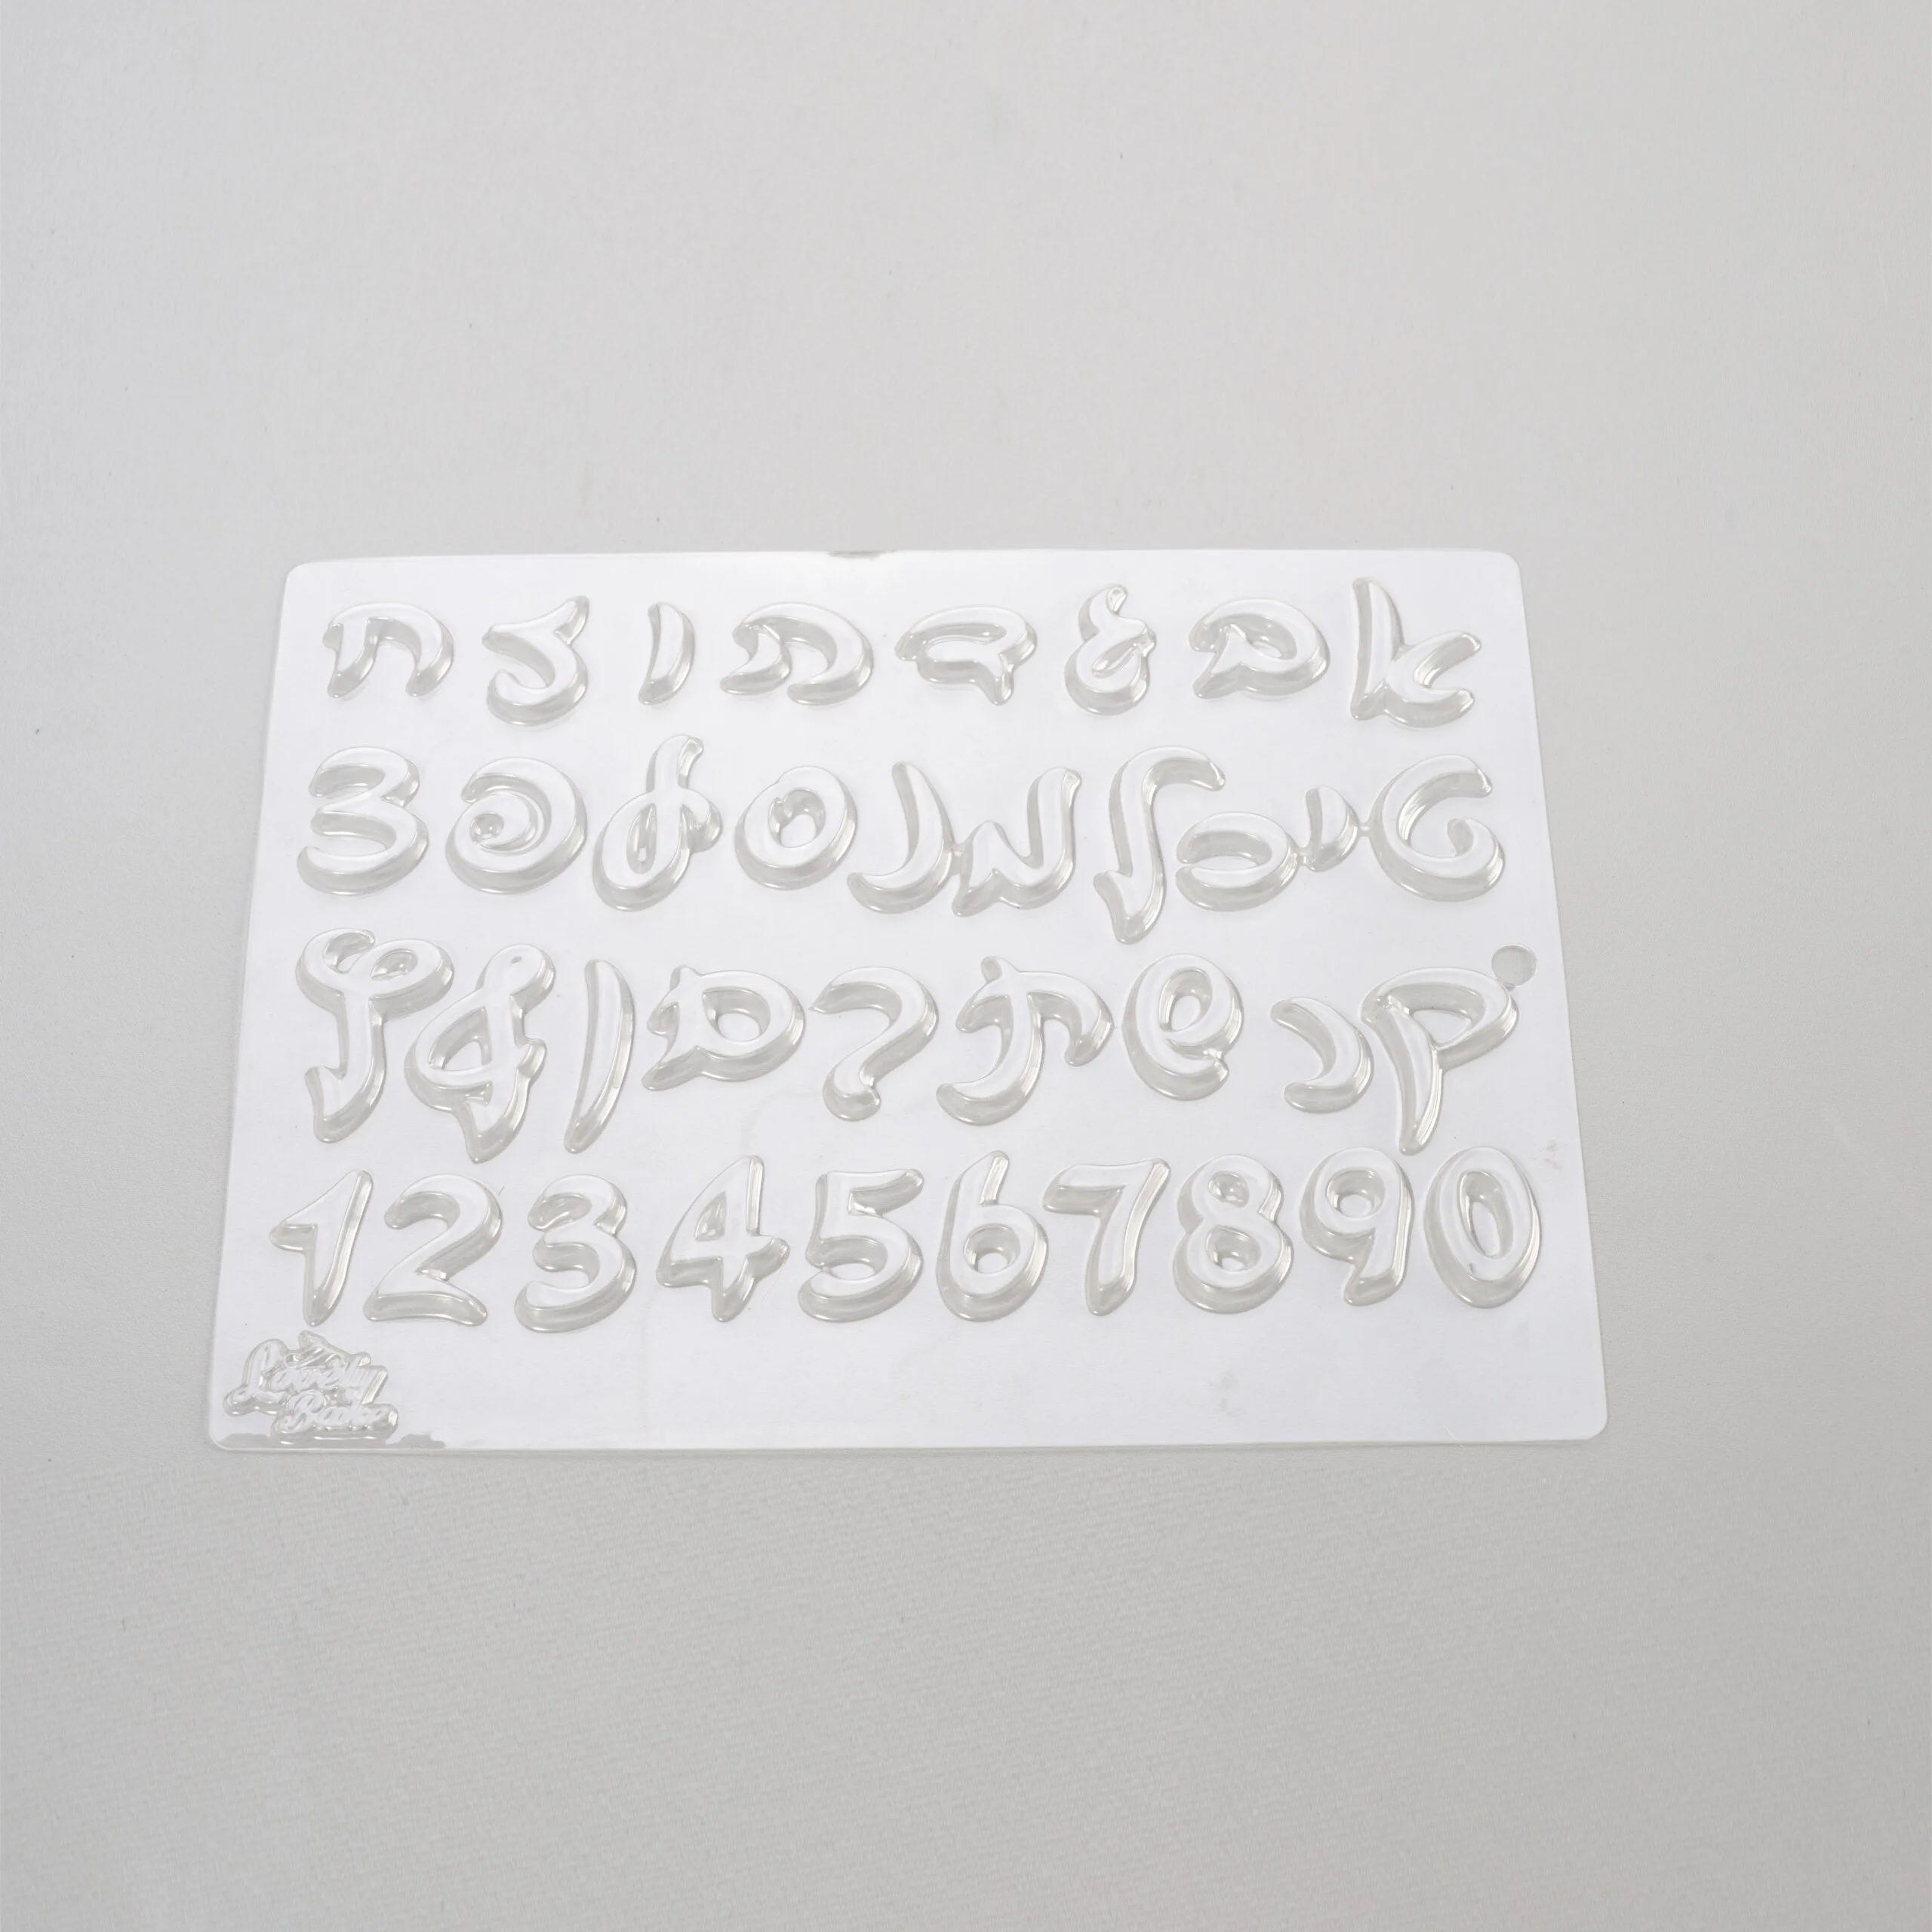 א ב ג ד ה ו ז ח
ט י כ ל מ נ ס ע פ צ
ק ר ש ת ך ם ן ף ץ
1 2 3 4 5 6 7 8 9 0
Lovely
Bake